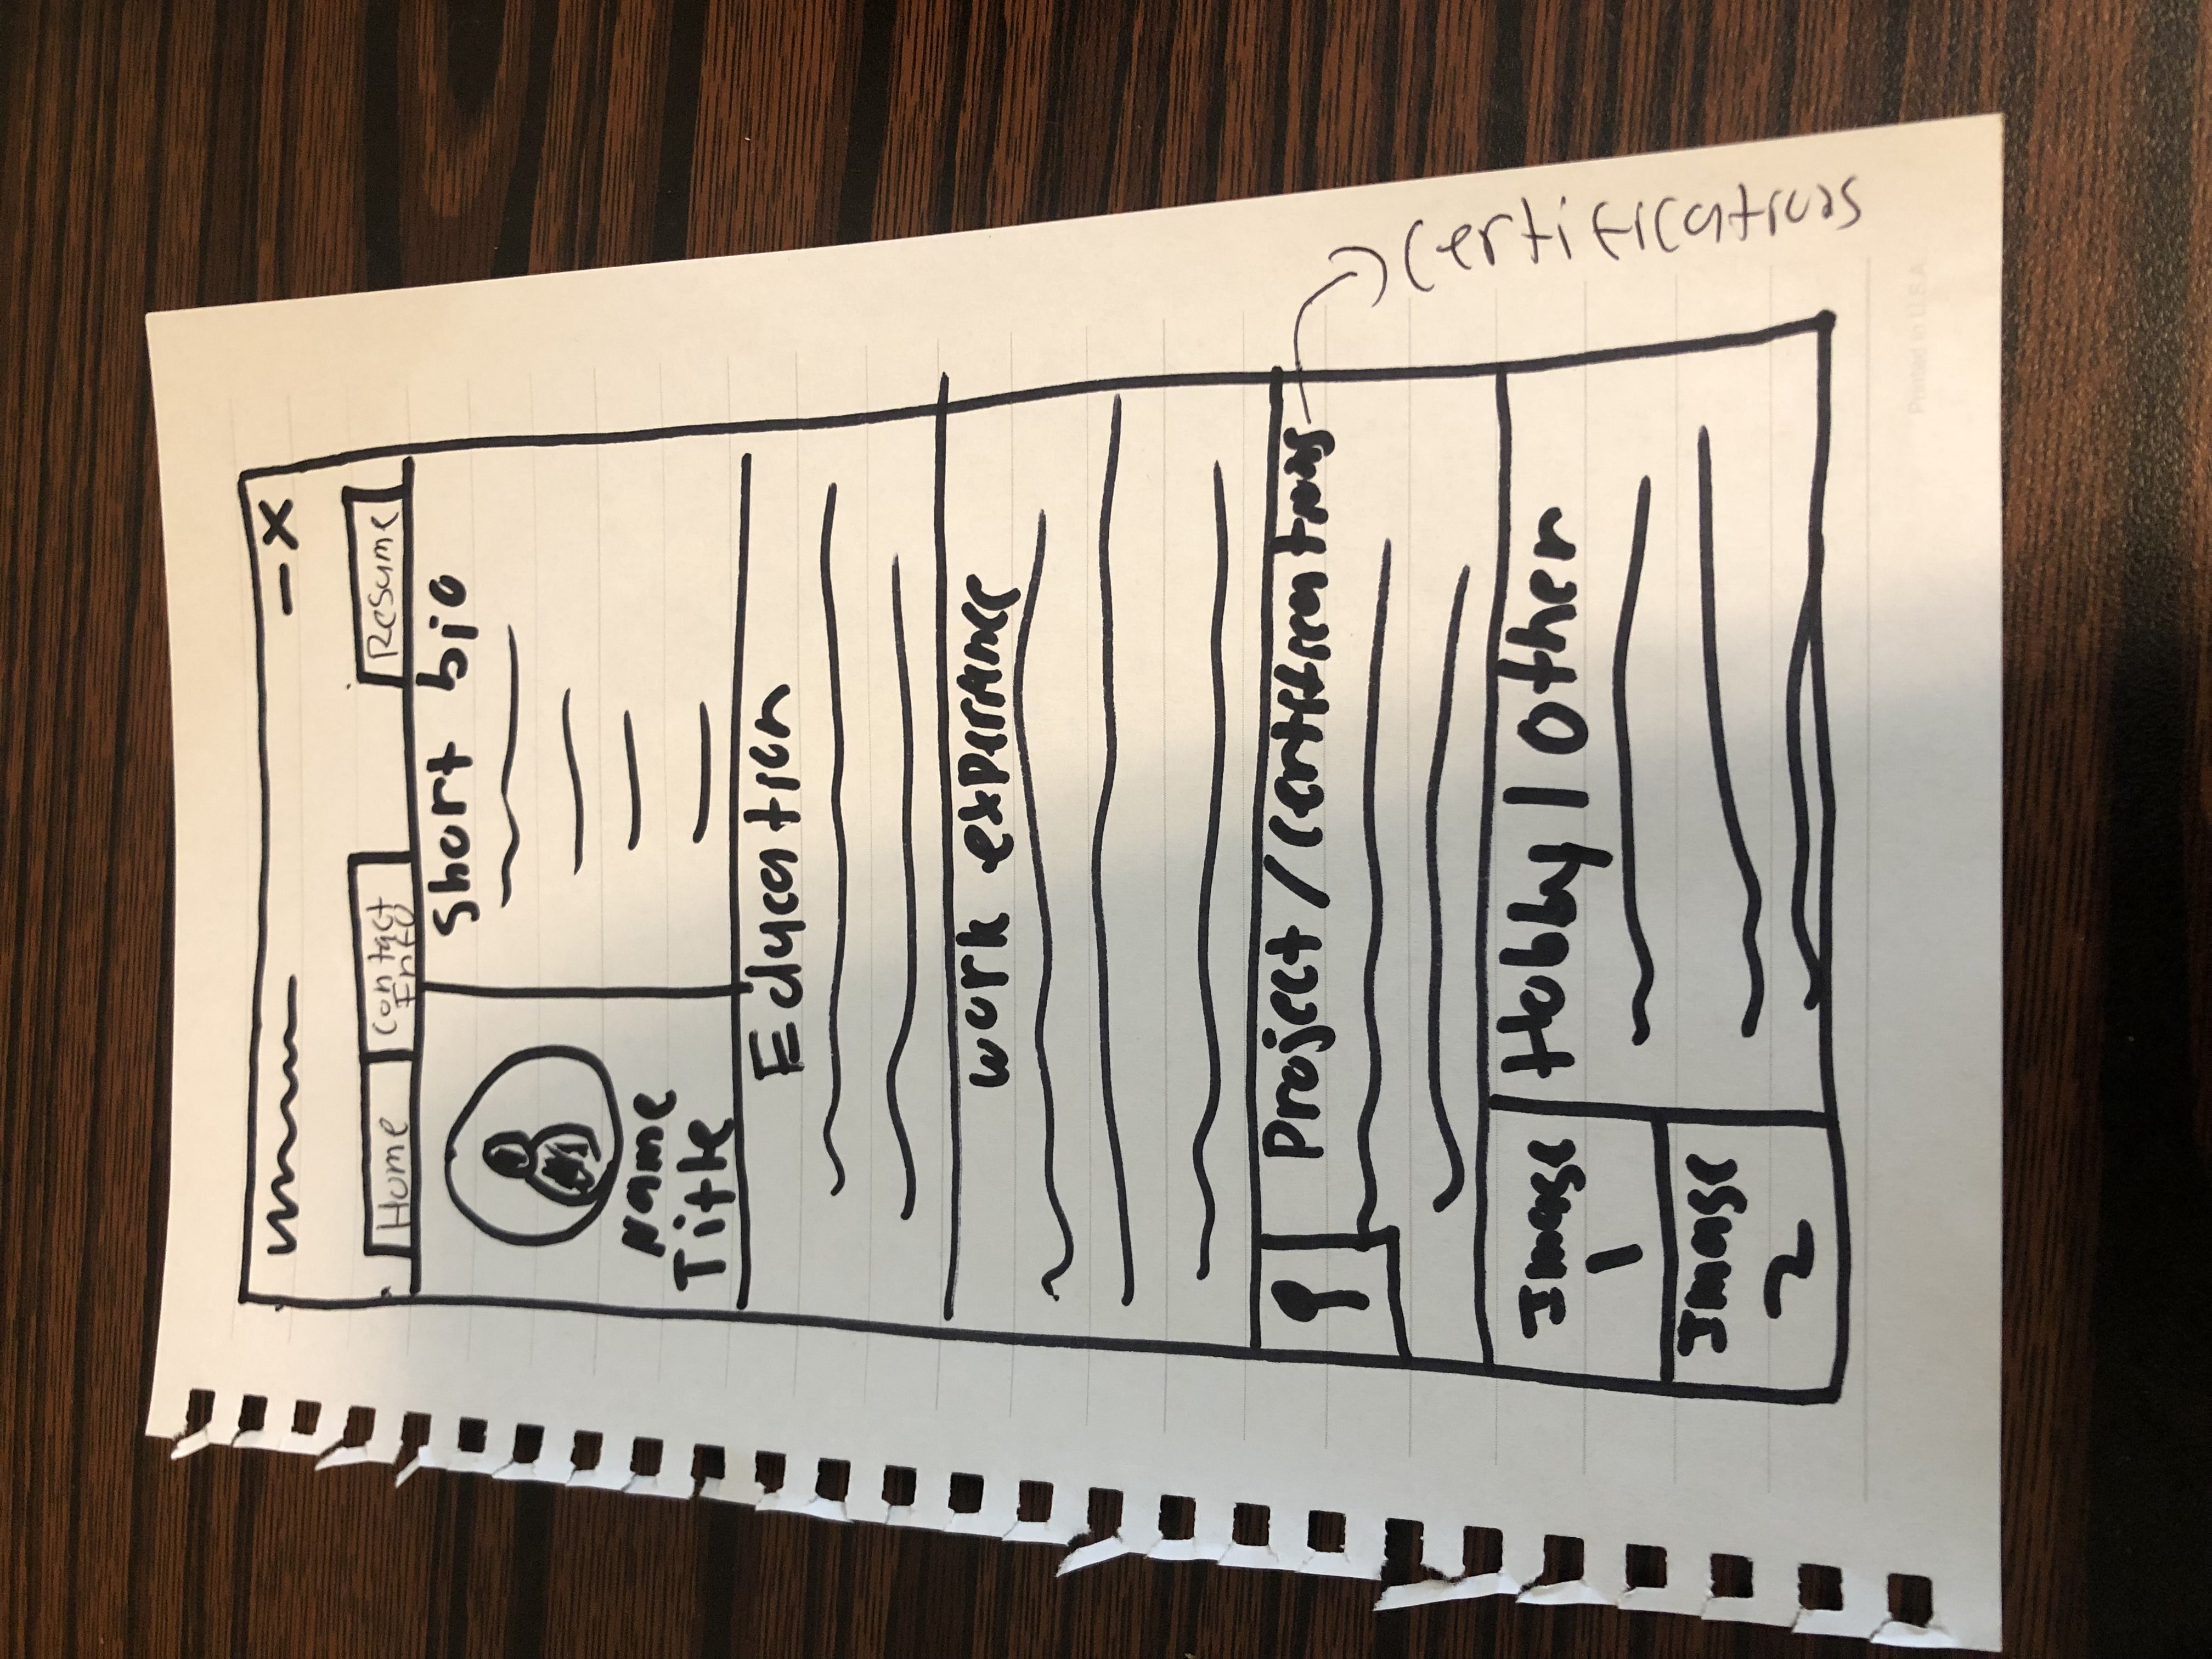 Home
Contact
Info
Resume
Short bio
Name
Title
Education
work experience
Project / Certifications
Certifications
Image
1
Hobby | Other
Image
2
Printed in U.S.A.